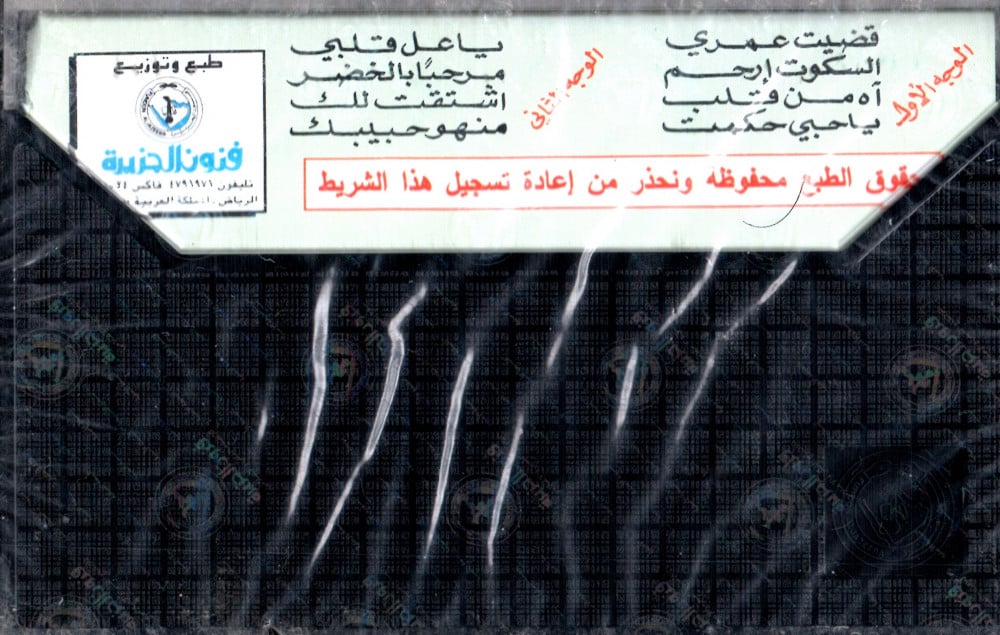 الوجه الأول
قضيت عمري
السكوت إرحم
آه من قلب
ياحبي حكمت
الوجه الثاني
ياعل قلبي
مرحبًا بالخضر
اشتقت لك
منهو حبيبك
طبع وتوزيع
فنون الجزيرة
تليفون ٤٧٩١٩٧١ فاكس
الرياض المملكة العربية
حقوق الطبع محفوظه ونحذر من إعادة تسجيل هذا الشريط